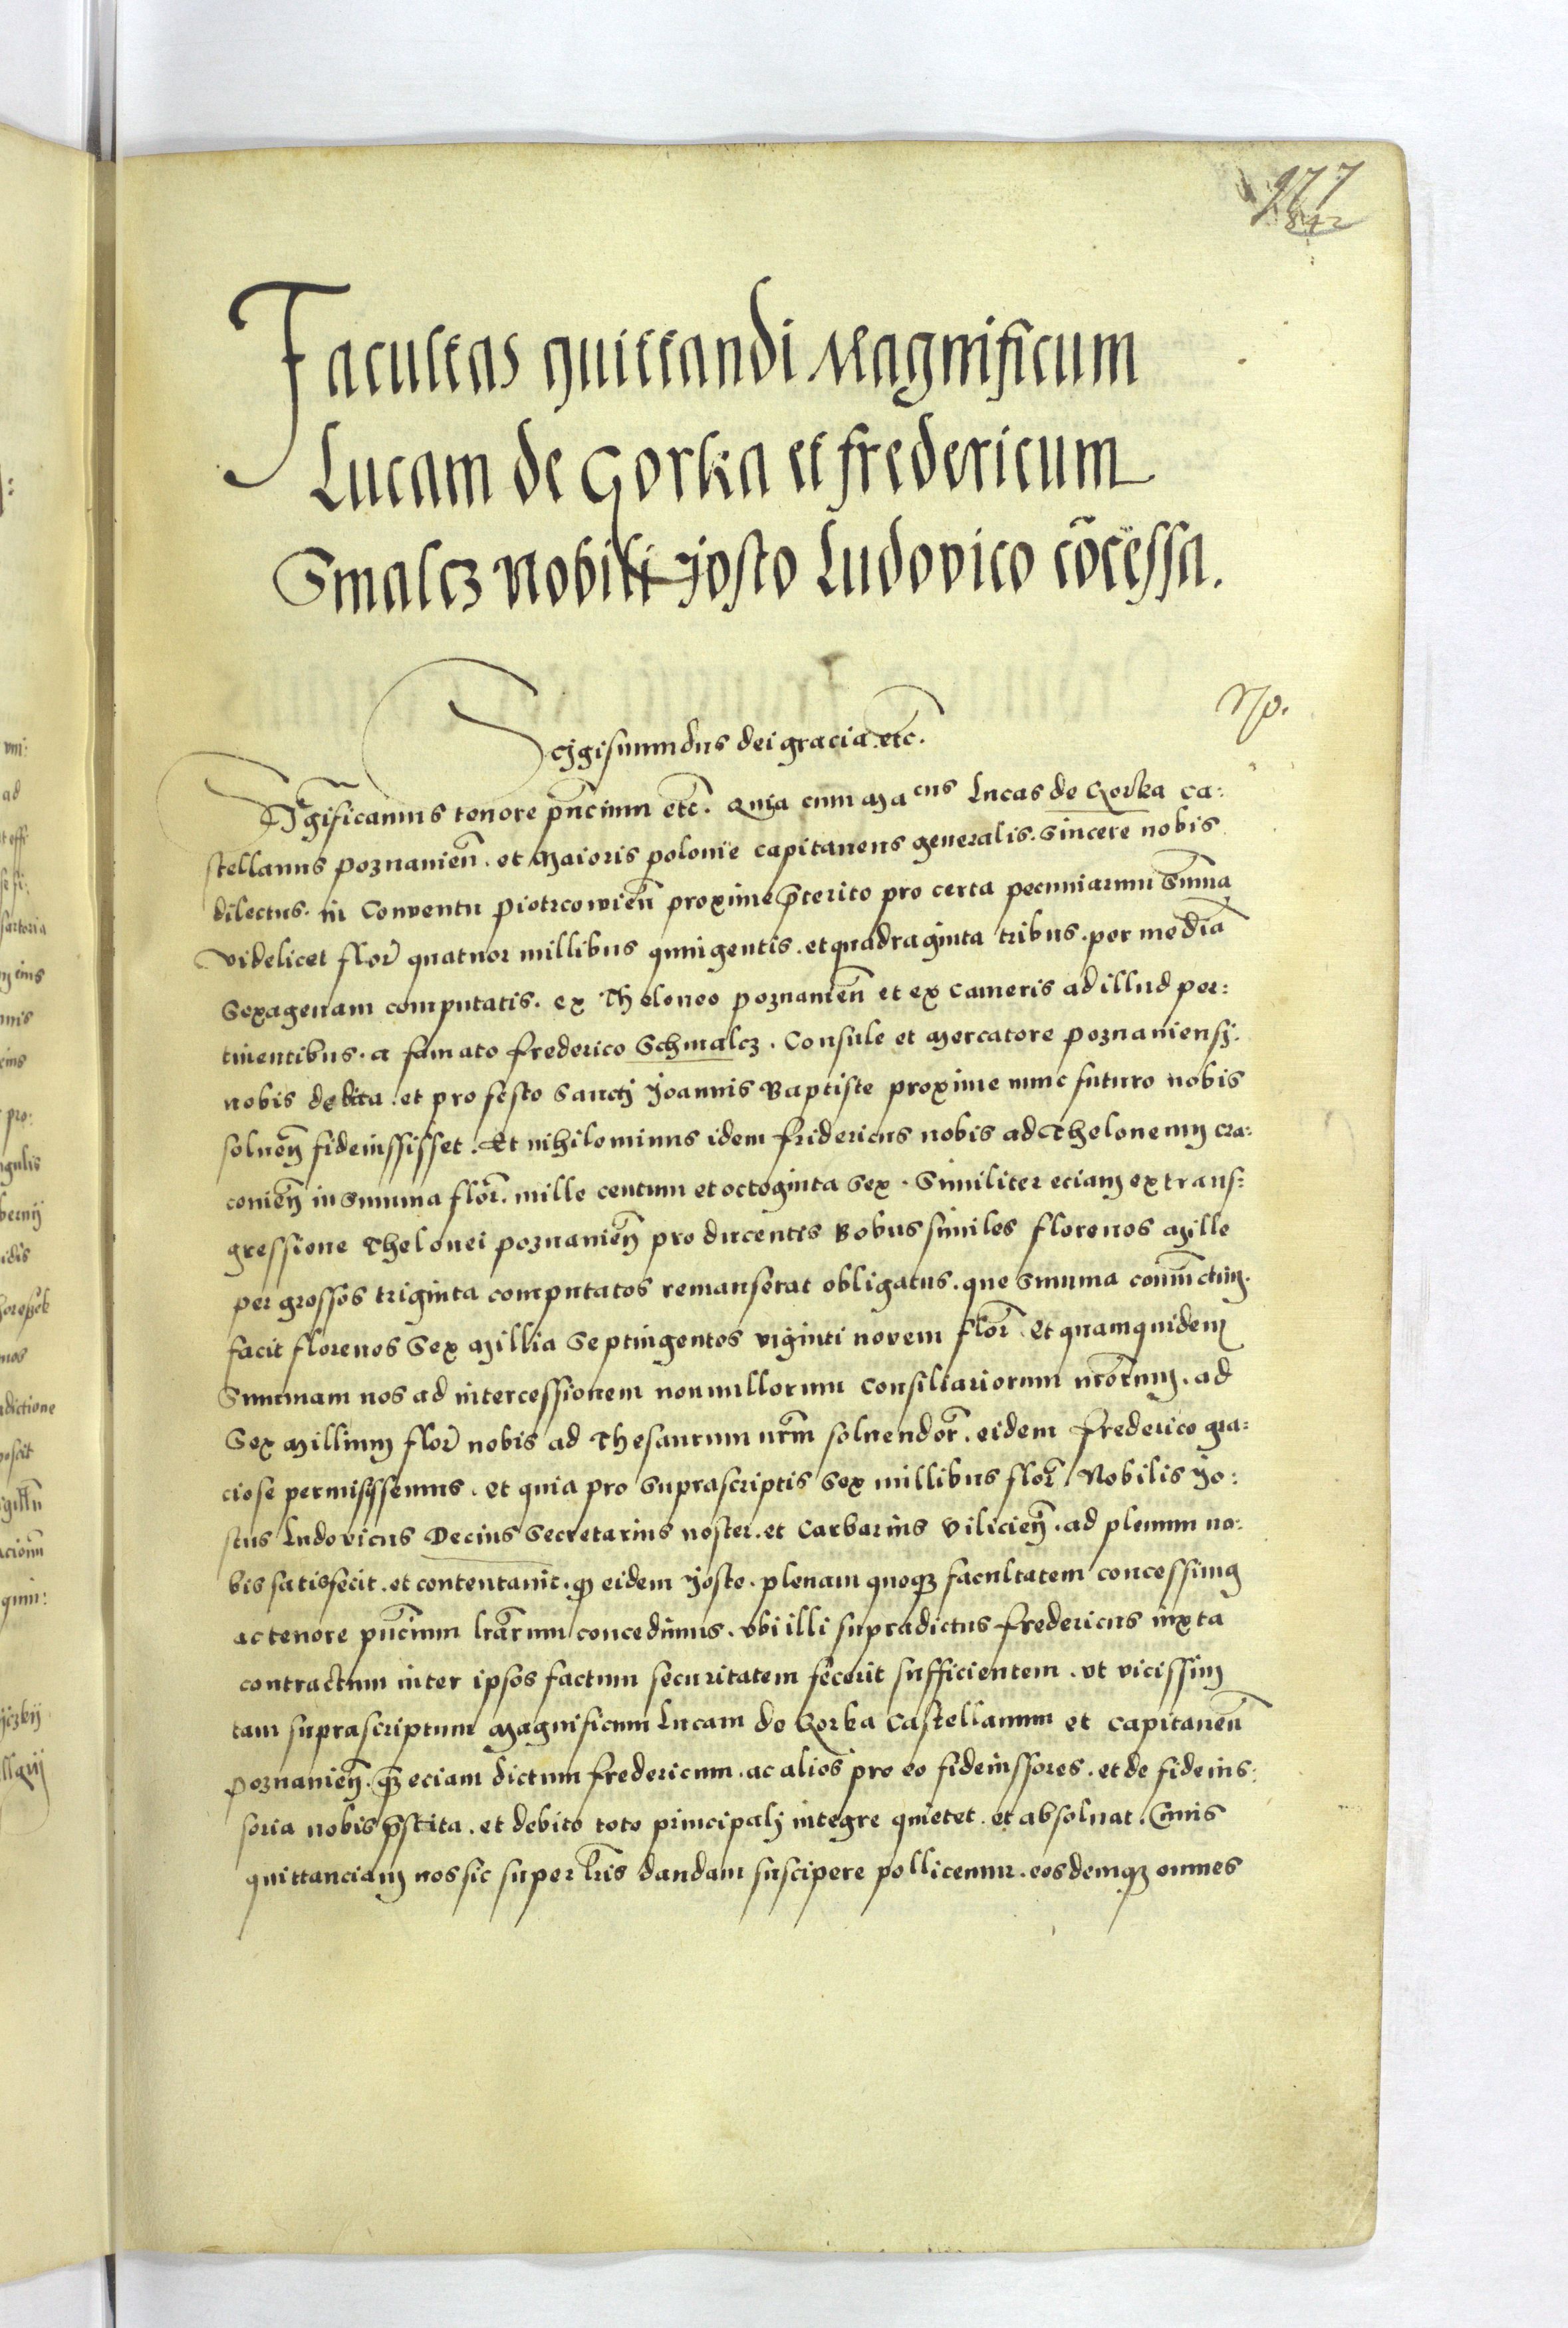 277
842
Facultas quittandi Magnificum
Lucam de Gorka et fredericum
Smalcz Nobili Josto Ludovico cõcessa.
Np.
Scigismundus dei gracia etc.
Sigńificamus tenore pñcium etc. Quia cum Macus Lucas de Gorka Ca:
stellanus poznanieñ. et Maioris polonie capitaneus generalis. Sincere nobis
dilectus. in Conventu piotrcowieñ proxime p̃terito pro certa pecuniarum Sum̃a
Videlicet flor̃ quatuor millibus quingentis. et quadraginta tribus. per mediã
Sexagenam computatis. ex Theloneo poznanieñ et ex Cameris ad illud per:
tinentibus. a famato frederico Schmalcz. Consule et Mercatore poznaniensj.
nobis debita. et pro festo Sanctj Joannis Baptiste proxime nunc futuro nobis
solueñ fideiussisset. Et nihilominus idem fridericus nobis ad Theloneum cra:
conieñ in Summa flor̃. mille centum et octoginta Sex. Similiter eciam ex trans:
gressione Thelonei poznanieñ pro ducentis Bobus similes florenos Mille
per grossos triginta computatos remanserat obligatus. que Summa coniũctim.
facit florenos Sex Millia Septingentos viginti novem flor̃. et quamquidem
Summam nos ad intercessionem nonnullorum Consiliariorum nr̃orum. ad
Sex Millium flor̃ nobis ad Thesaurum nr̃m soluendor̃. eidem frederico gra:
ciose permisissemus. et quia pro Suprascriptis Sex millibus flor̃. Nobilis Jo:
stus Ludovicus Decius Secretarius noster. et Carbarius Viliciеñ. ad plenum no:
bis satisfecit. et contentauit. q̃ eidem Josto. plenam quoqz facultatem concessimꝯ
ac tenore pñcium lr̃arum concedimus. vbi illi supradictus fredericus iuxta
contractum inter ipsos factum securitatem fecerit sufficientem. vt vicissim
tam suprascriptum Magnificum Lucam de Gorka Castellanum et Capitaneũ
poznanieñ. q̃z eciam dictum fredericum. ac alios pro eo fideiussores. et de fideius:
soria nobis p̃stita. et debito toto principalj integre quietet. et absoluat. Cuius
quittanciam nos sic super lr̃is dandam suscipere pollicemur. eosdemqz omnes